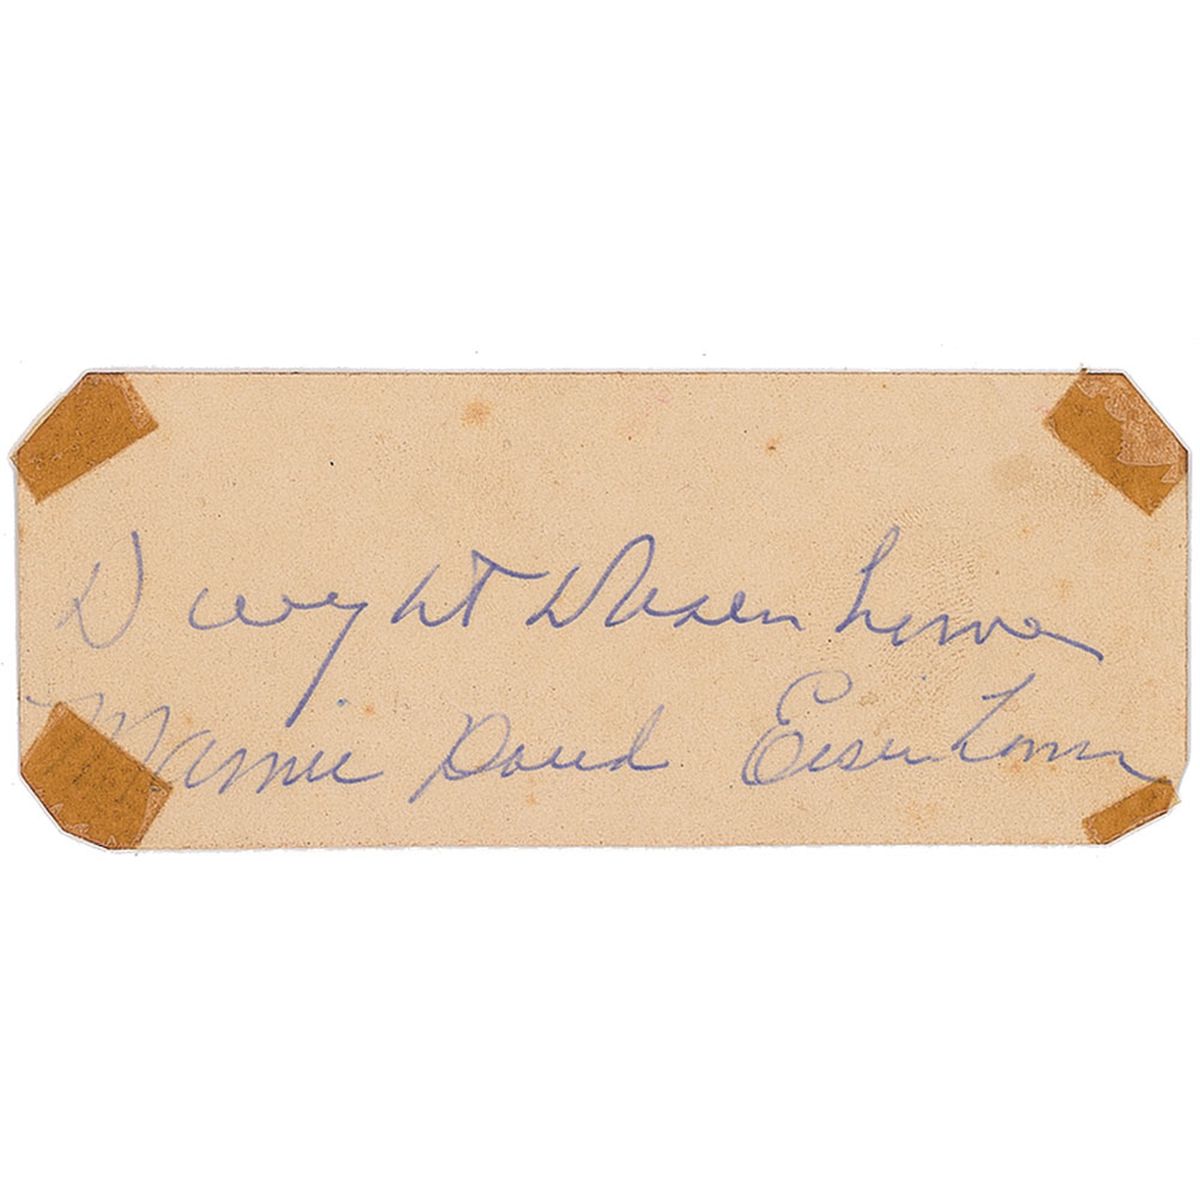 Dwight D Eisenhower
Mamie Doud Eisenhower